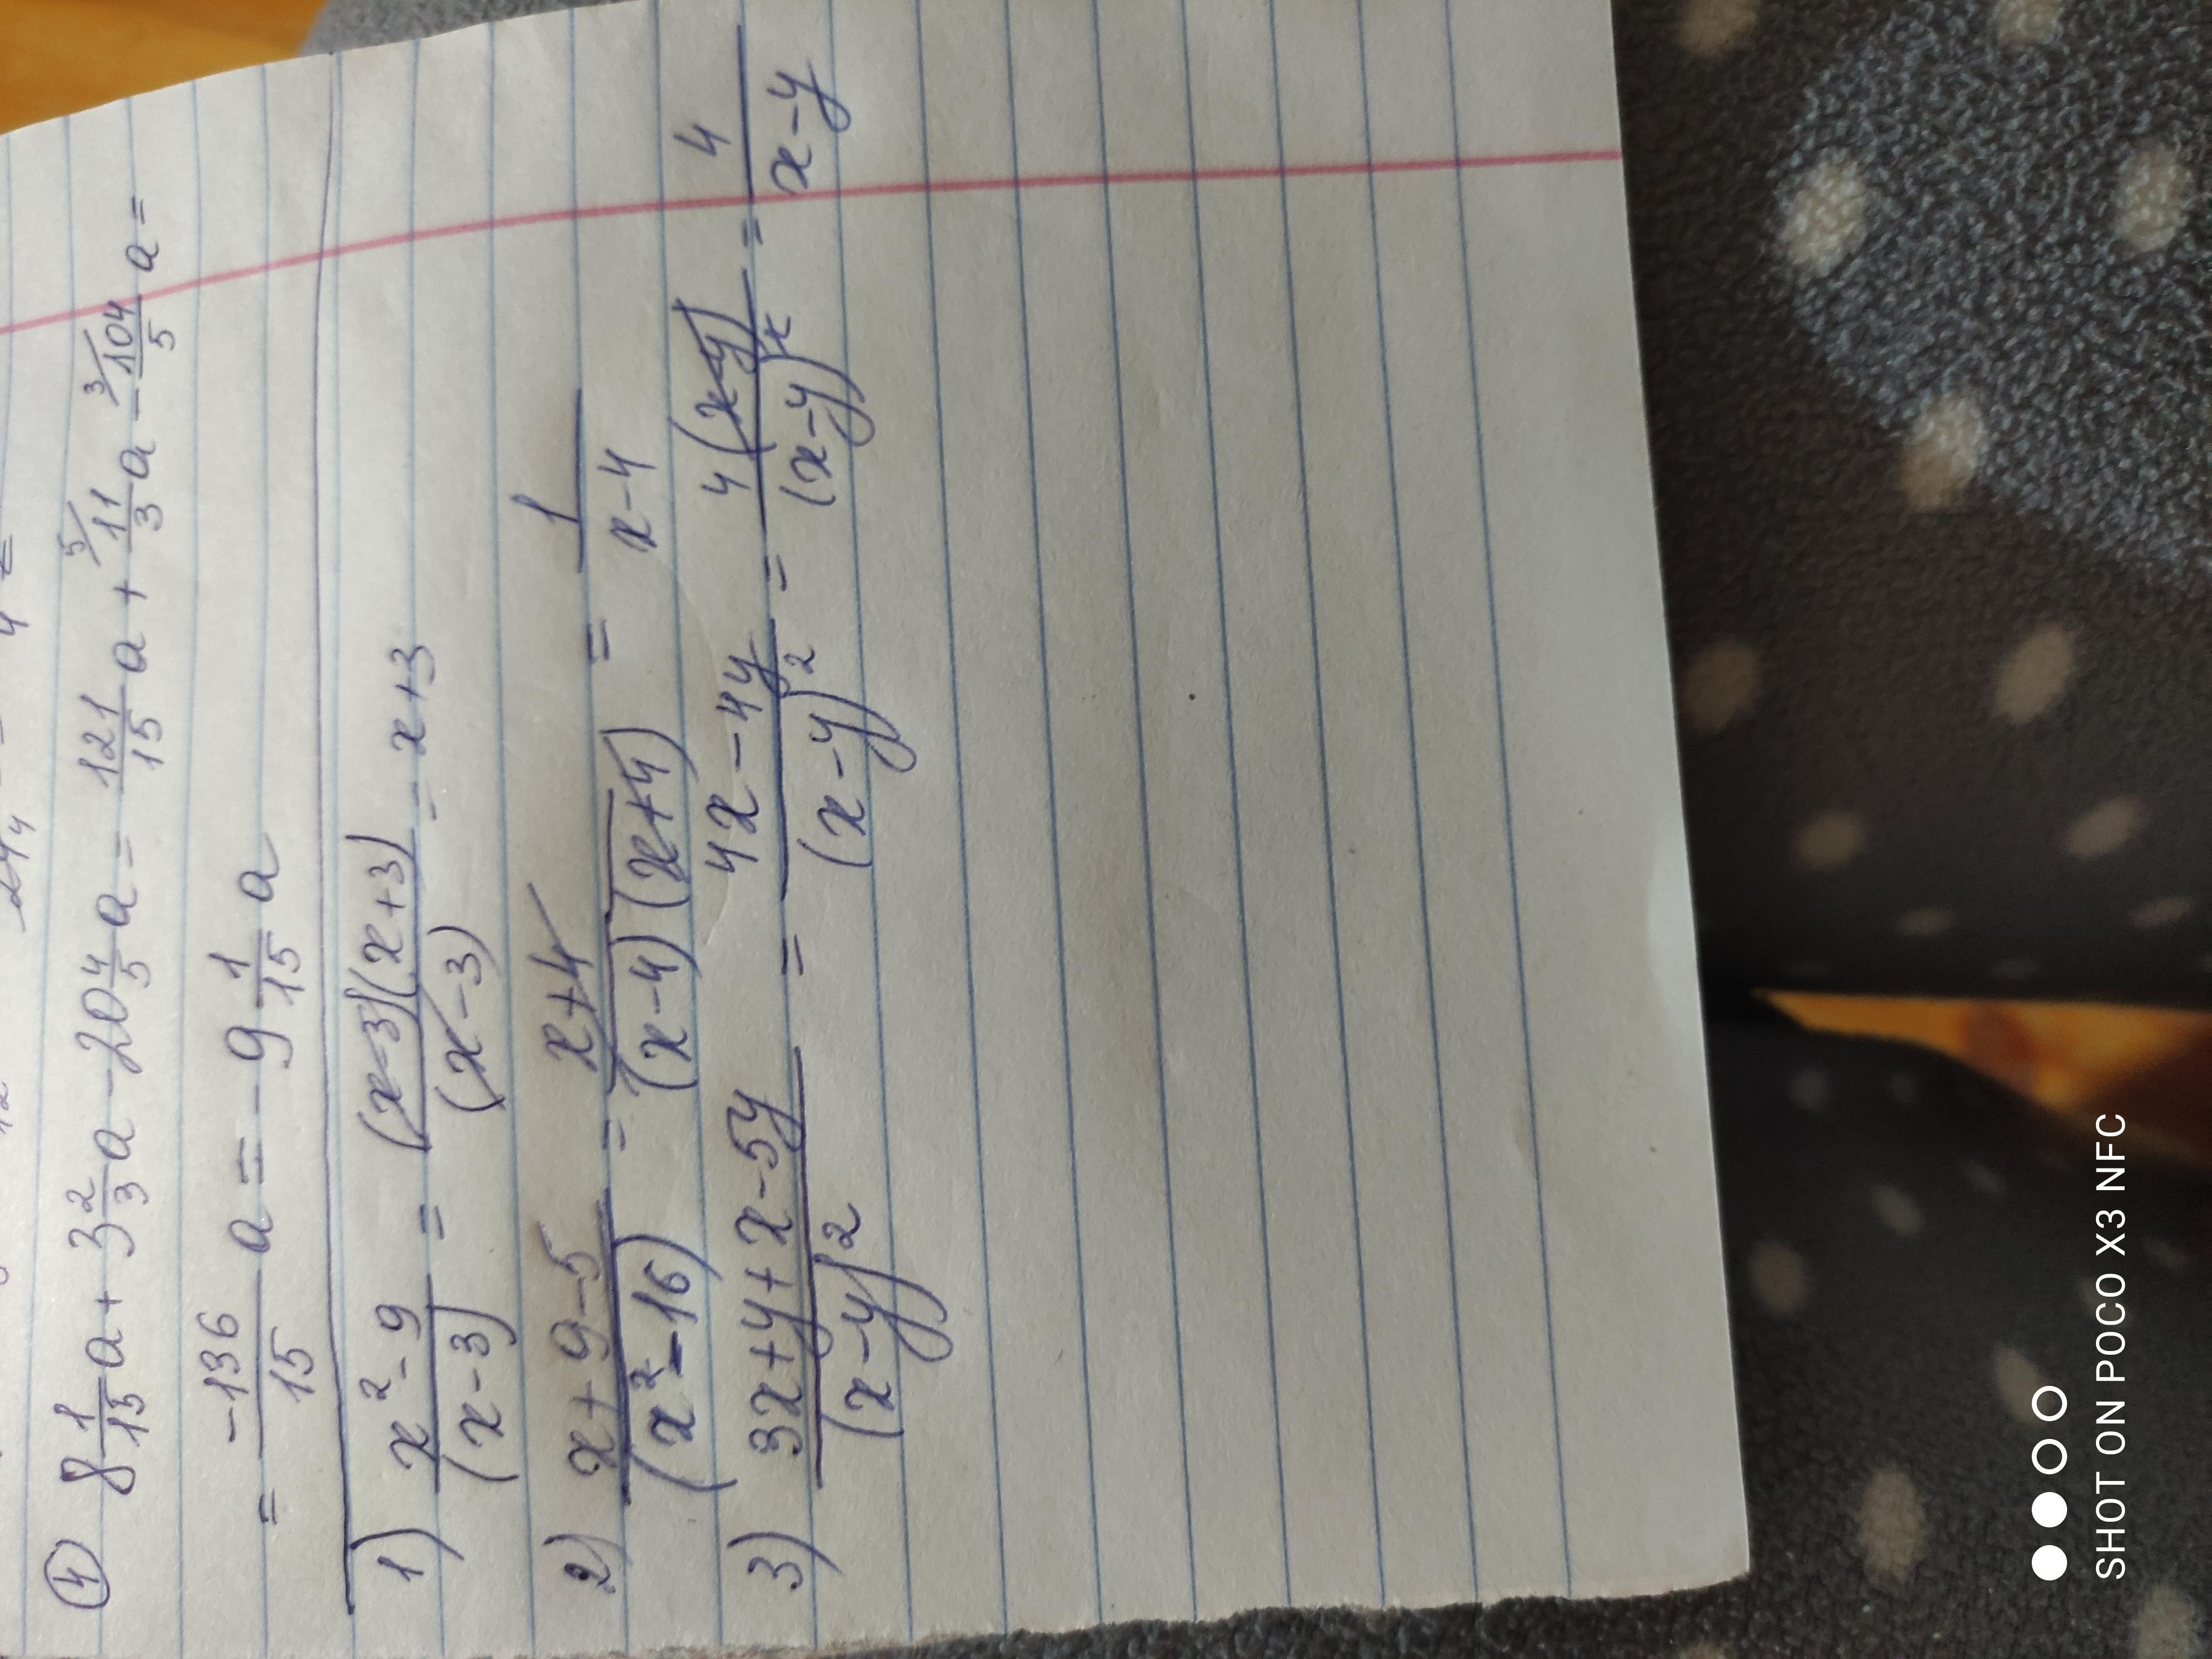 ④ 8 1/15 a + 3 2/3 a - 20 4/5 a = 121/15 a + 5/ 11/3 a - 3/ 104/5 a =
= -136/15 a = -9 1/15 a
1) x²-9/(x-3) = (x-3)(x+3)/(x-3) = x+3
2) x+9-5/(x²-16) = x+4/(x-4)(x+4) = 1/x-4
3) 3x+y+x-5y/(x-y)² = 4x-4y/(x-y)² = 4(x-y)/(x-y)² = 4/x-y
SHOT ON POCO X3 NFC